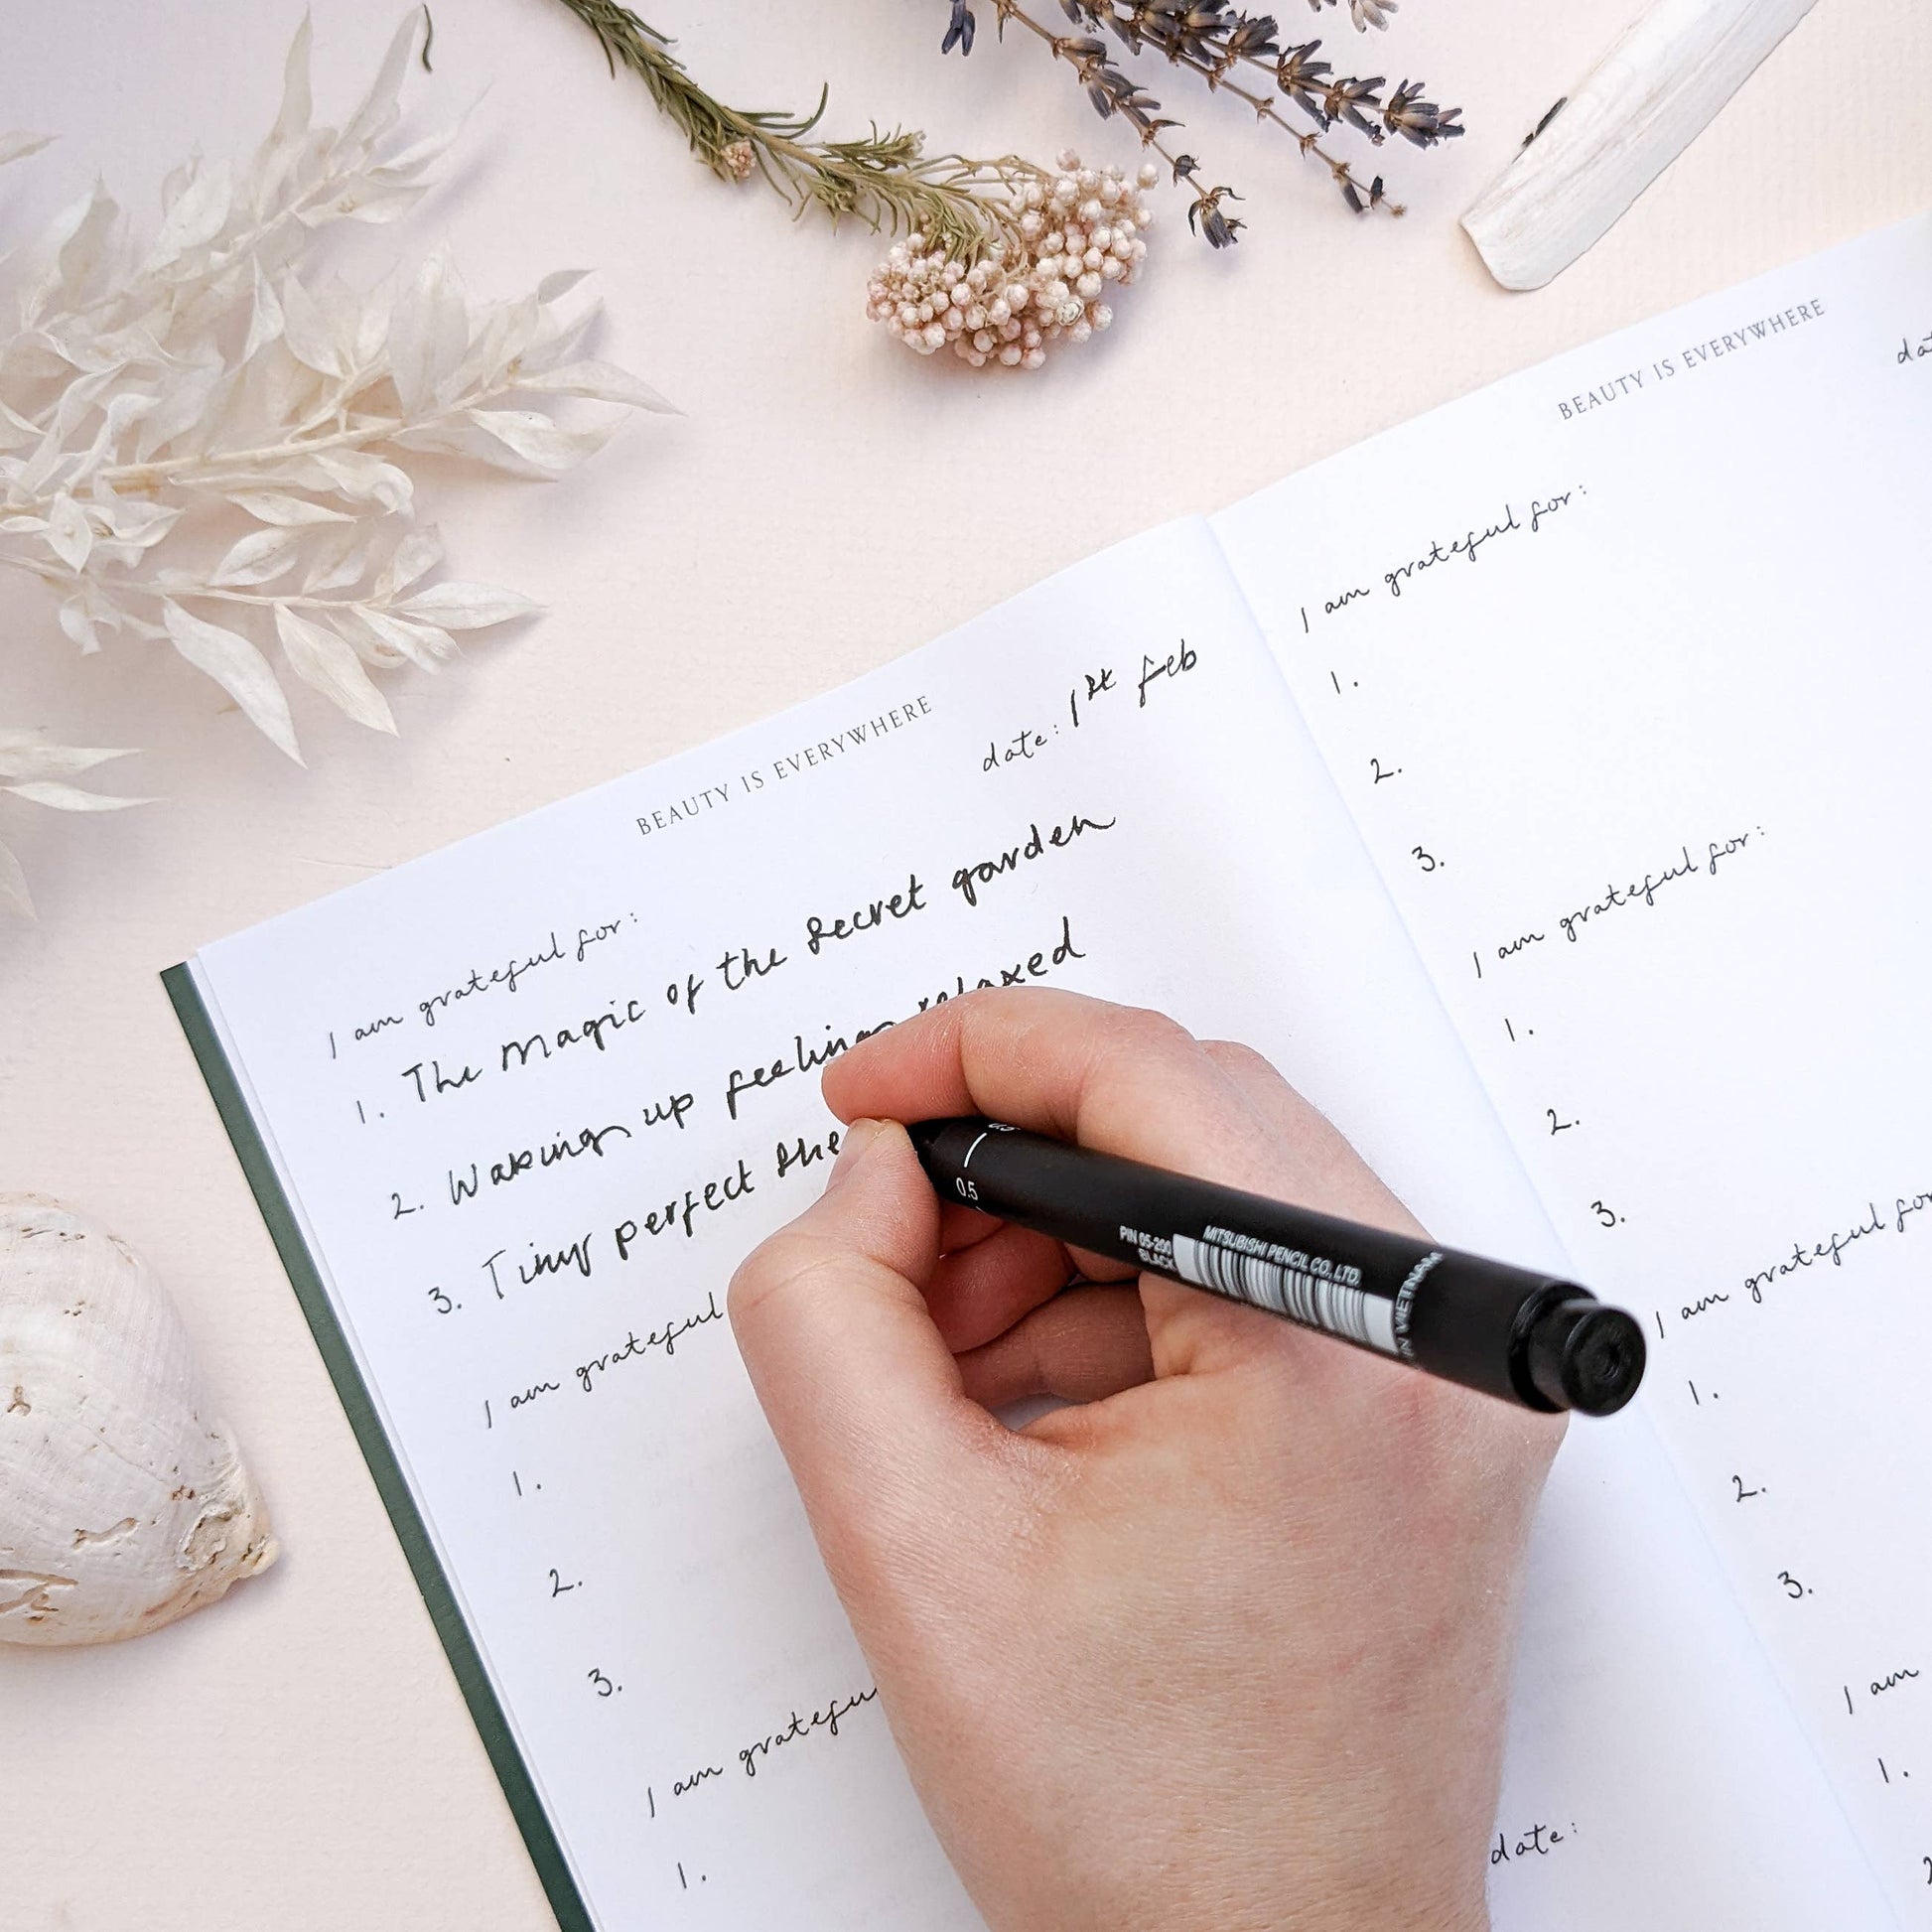 BEAUTY IS EVERYWHERE
date: 1st feb
I am grateful for:
1. The Magic of the Secret garden
2. Waking up feeling relaxed
3. Tiny perfect she
I am grateful
1.
2.
3.
I am grateful
1.
date:
BEAUTY IS EVERYWHERE
I am grateful for:
1.
2.
3.
I am grateful for:
1.
2.
3.
I am grateful for
1.
2.
3.
I am
1.
0.5
PIN 05-200
BLACK
MITSUBISHI PENCIL CO., LTD.
IN VIETNAM